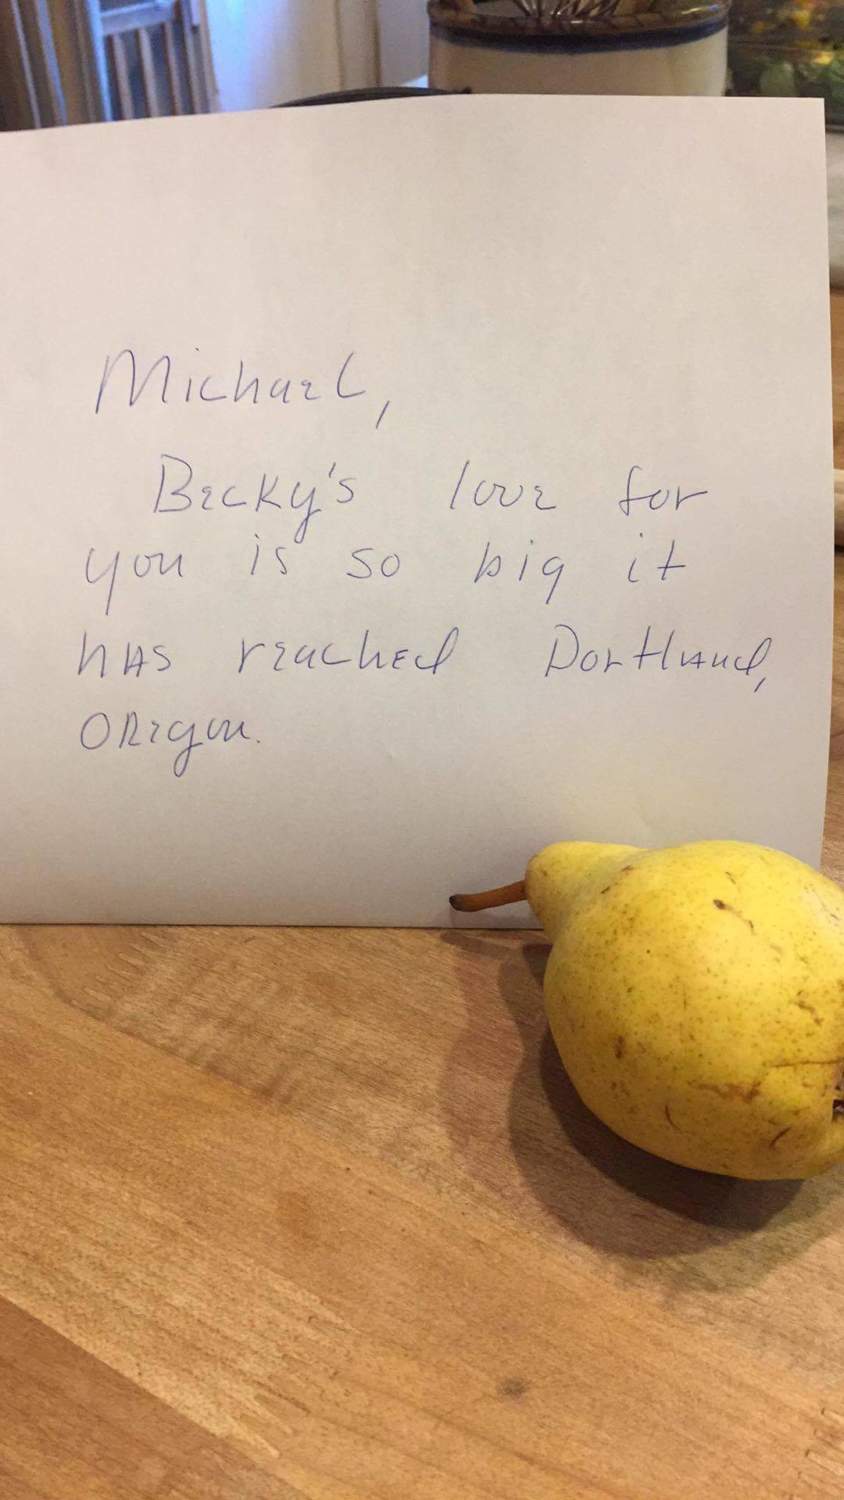 Michael,
Becky's love for
you is so big it
has reached Portland,
Oregon.